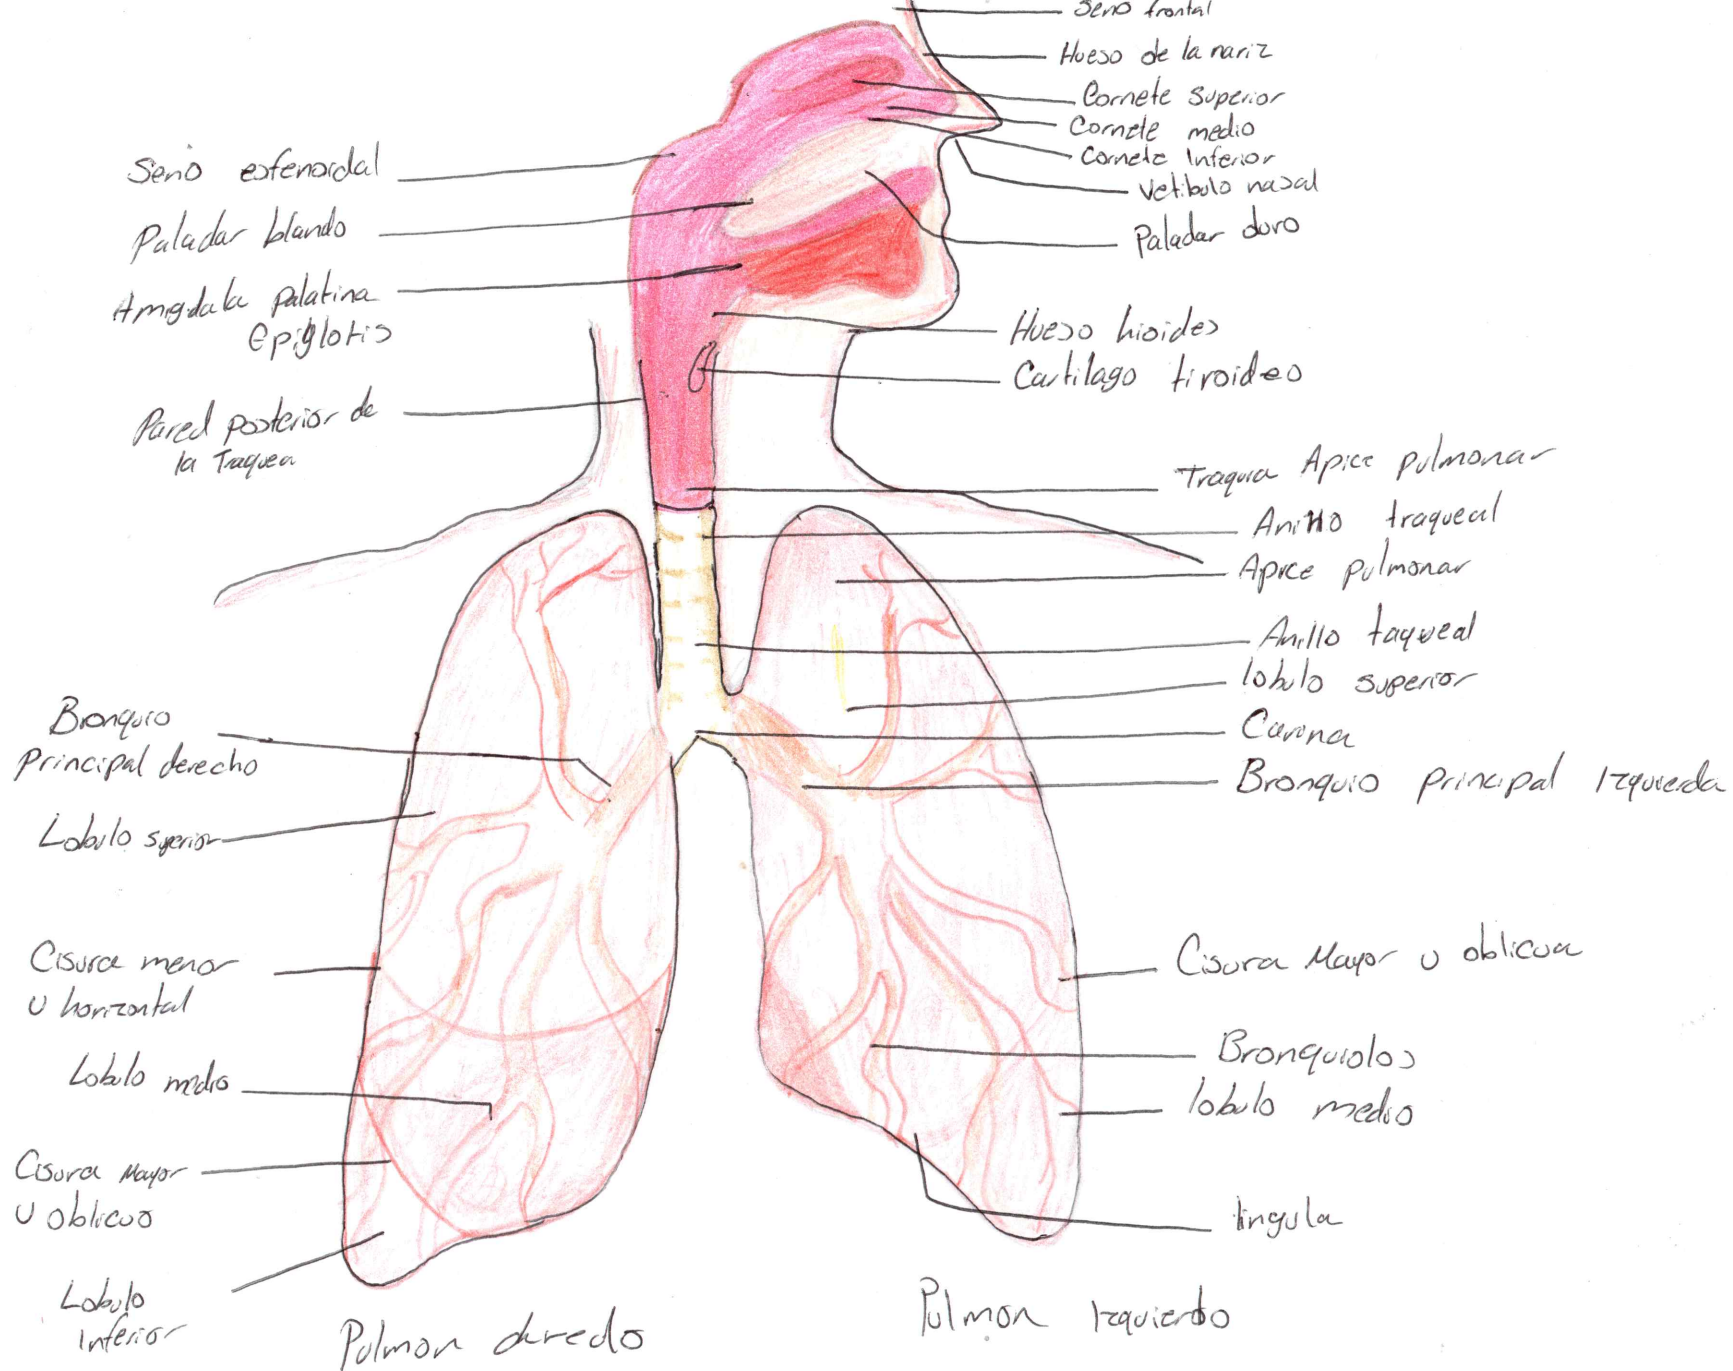 Seno frontal
Hueso de la nariz
Cornete Superior
Cornete medio
Cornete Inferior
Vetibulo nasal
Paladar duro
Hueso hioides
Cartilago tiroideo
Traquia Apice pulmonar
Anillo traqueal
Apice pulmonar
Anillo taqueal
lobulo superior
Carina
Bronquio principal Izquierda
Cisura Mayor u oblicua
Bronquiolos
lobulo medio
lingula
Seno esfenoidal
Paladar blando
Amigdala palatina
Epiglotis
Pared posterior de
la Traquea
Bronquio
Principal derecho
Lobulo superior
Cisura menor
u horizontal
Lobulo medio
Cisura Mayor
u oblicuo
Lobulo
Inferior
Pulmon deredo
Pulmon Izquierdo